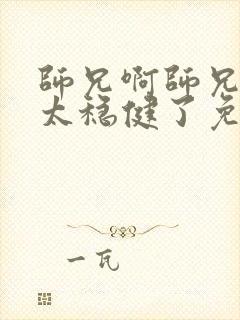 師兄啊師兄
太穩健了免
一瓦